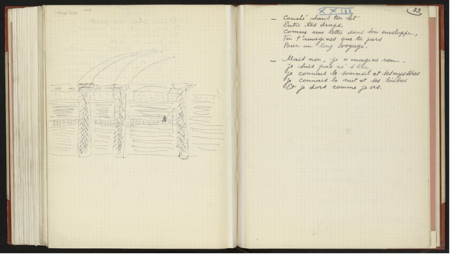 XXIII
23
— Couché dans ton lit
Entre tes draps,
Comme une lettre dans son enveloppe,
Tu t'imagines que tu pars
Pour un long voyage.
— Mais non, je n'imagine rien.
Je suis pas né d'hier
Je connais le sommeil et ses mystères
Je connais la nuit et ses
Et je dors comme je vis.